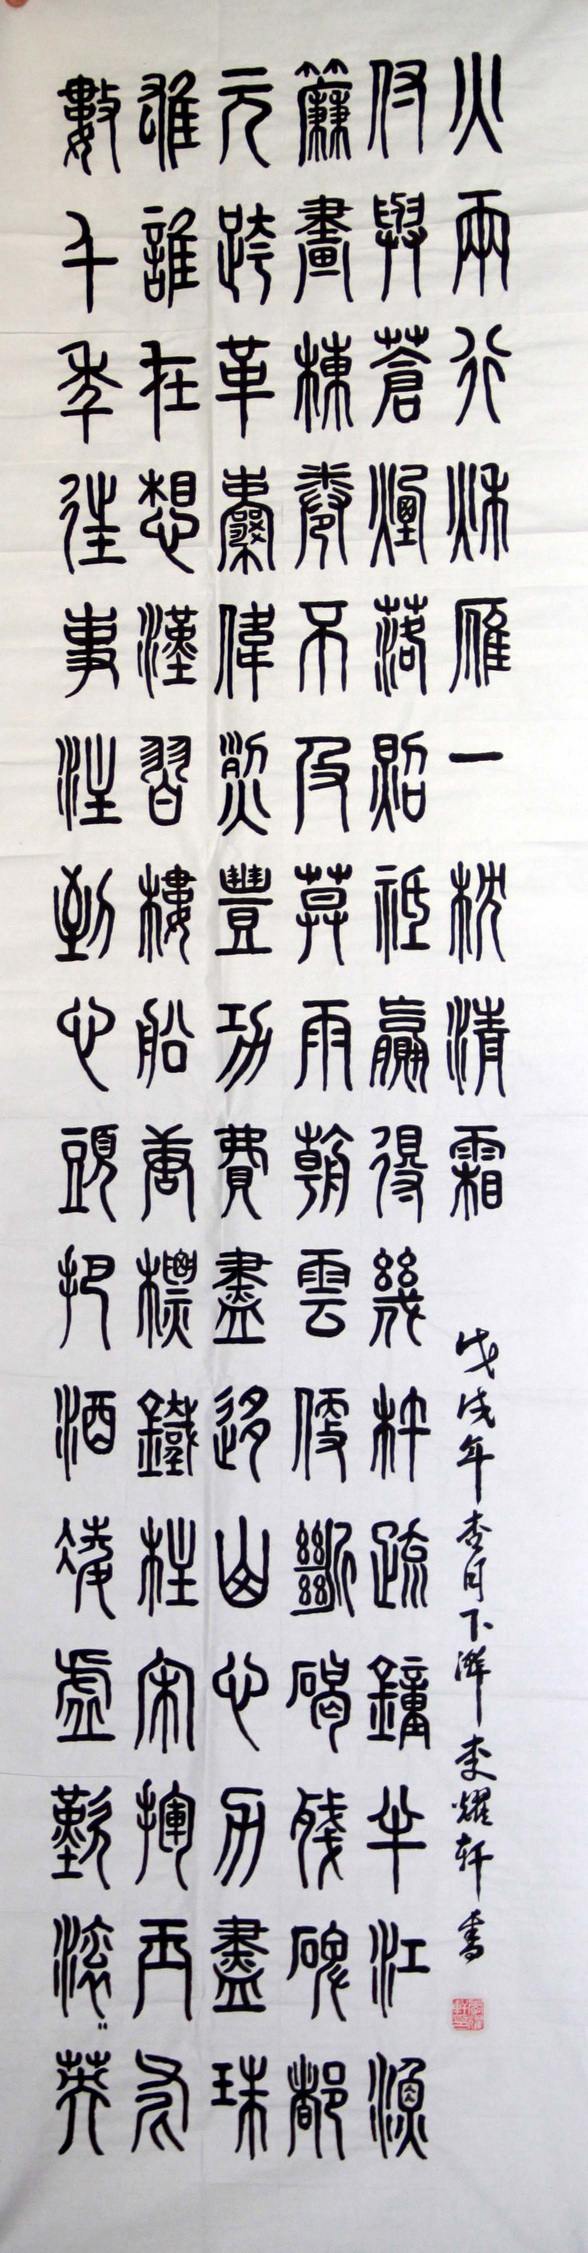 數千年往事注到心頭把酒凌虛歎滾〻英
雄誰在想漢習樓船唐標鐵柱宋揮玉斧
元跨革囊偉烈豐功費盡移山心力盡珠
簾畫棟卷不及莫雨朝雲便斷碣殘碑都
付與蒼煙落照祗贏得幾杵疏鐘半江漁
火兩行秋雁一枕清霜
戊戌年杏月下澣李耀轩書